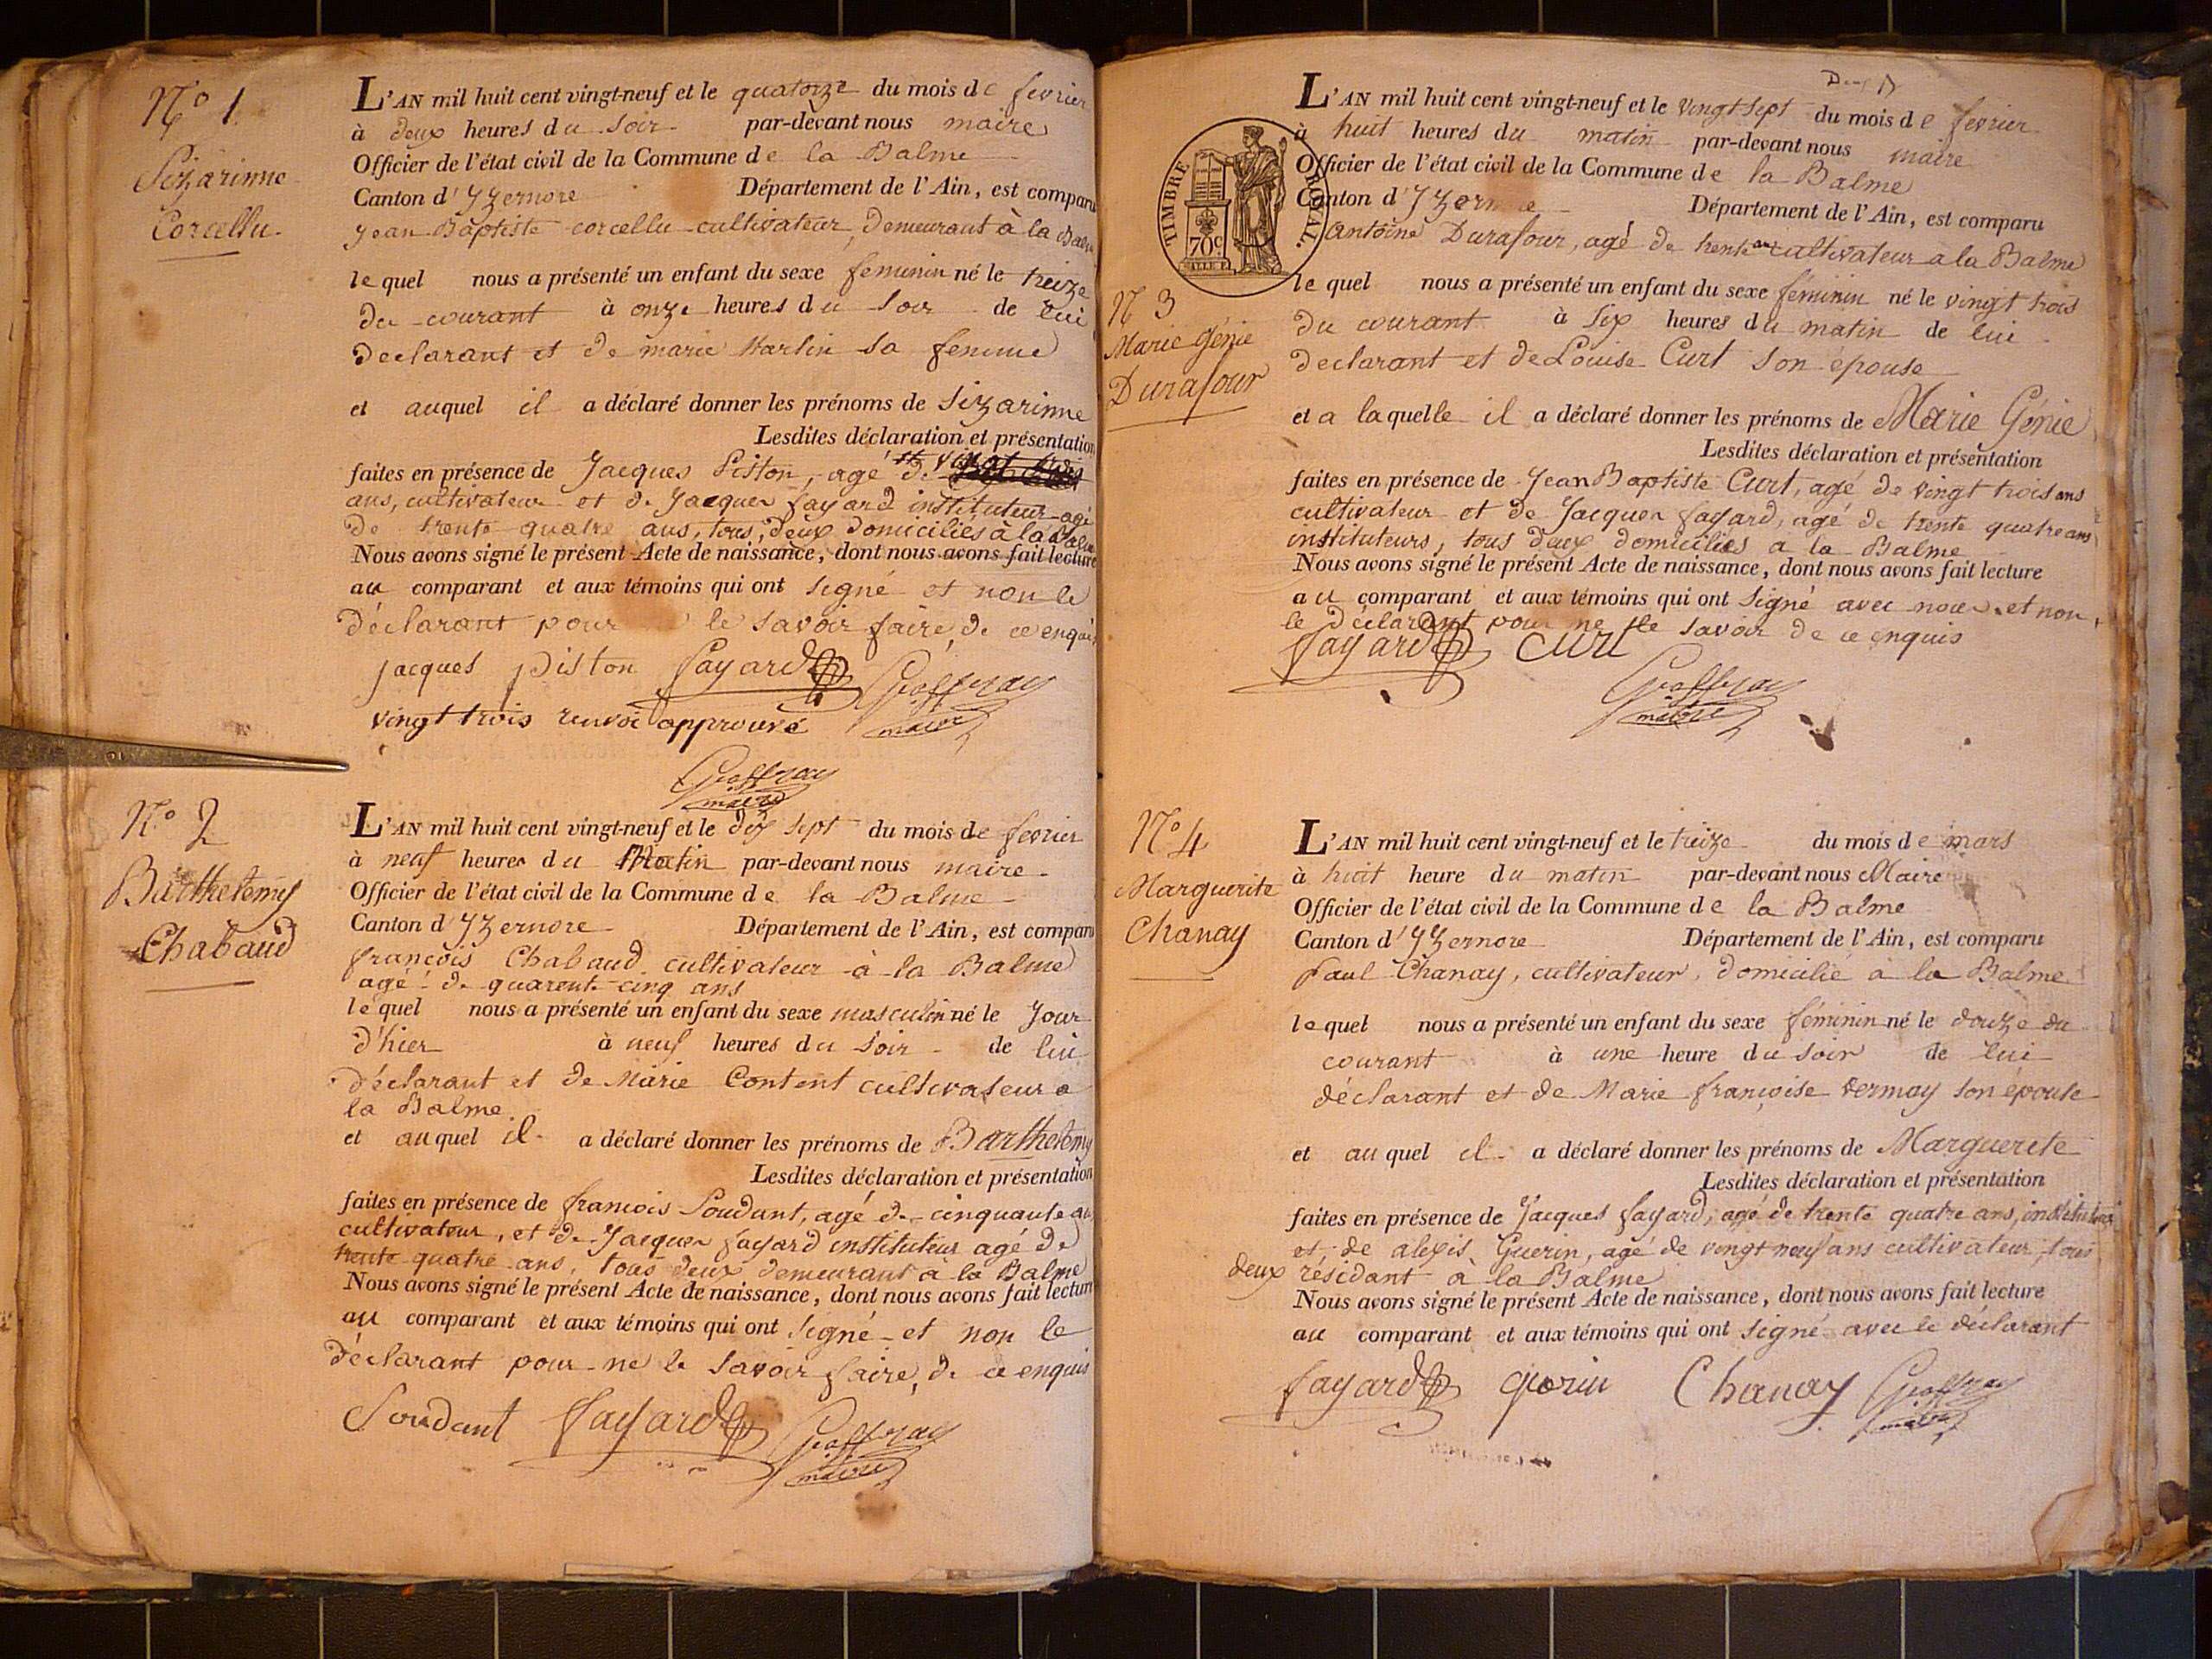 N° 1.
Sizarinne
Corcellu.
L'AN mil huit cent vingt-neuf et le quatorze du mois de fevrier
à deux heures du soir par-devant nous maire
Officier de l'état civil de la Commune de la Balme
Canton d'Yzernore Département de l'Ain, est comparu
Jean Baptiste corcellu cultivateur, demeurant à la Balme
lequel nous a présenté un enfant du sexe feminin né le treize
du courant à onze heures du soir de lui
declarant et de marie Martin sa femme
et auquel il a déclaré donner les prénoms de Sizarinne
Lesdites déclaration et présentation
faites en présence de Jacques Piston, agé de
ans, cultivateur et de Jacques fayard instituteur agé
de trente quatre ans, tous deux domiciliés à la Balme
Nous avons signé le présent Acte de naissance, dont nous avons fait lecture
au comparant et aux témoins qui ont signé et non le
déclarant pour le savoir faire, de ce enquis
jacques piston fayard Geoffray
maire
vingt trois renvoi approuvé
Geoffray
maire
N° 2
Barthelemy
Chabaud
L'AN mil huit cent vingt-neuf et le dix sept du mois de fevrier
à neuf heures du Matin par-devant nous maire
Officier de l'état civil de la Commune de la Balme
Canton d'Yzernore Département de l'Ain, est comparu
françois Chabaud cultivateur à la Balme
agé de quarente cinq ans
lequel nous a présenté un enfant du sexe masculin né le Jour
d'hier à neuf heures du soir de lui
déclarant et de Marie Content cultivateur a
la Balme.
et auquel il a déclaré donner les prénoms de Barthelemy
Lesdites déclaration et présentation
faites en présence de françois Soudant, agé de cinquante ans
cultivateur, et de Jacques fayard instituteur agé de
trente quatre ans, tous deux demeurant à la Balme
Nous avons signé le présent Acte de naissance, dont nous avons fait lecture
au comparant et aux témoins qui ont signé et non le
déclarant pour ne le savoir faire, de ce enquis
Soudant fayard Geoffray
maire
TIMBRE ROYAL.
70c
N 3
Marie Génie
Durafour
L'AN mil huit cent vingt-neuf et le vingt sept du mois de fevrier
à huit heures du matin par-devant nous maire
Officier de l'état civil de la Commune de la Balme
Canton d'Yzernore Département de l'Ain, est comparu
Antoine Durafour, agé de trente ans cultivateur a la Balme
lequel nous a présenté un enfant du sexe féminin né le vingt trois
du courant à six heures du matin de lui
declarant et de Louise Curt son épouse
et a laquelle il a déclaré donner les prénoms de Marie Génie
Lesdites déclaration et présentation
faites en présence de Jean Baptiste Curt, agé de vingt trois ans
cultivateur et de Jacques fayard, agé de trente quatre ans
instituteurs, tous deux domiciliés a la Balme
Nous avons signé le présent Acte de naissance, dont nous avons fait lecture
au comparant et aux témoins qui ont signé avec nous et non
le déclarant pour ne le savoir de ce enquis
fayard Curt
Geoffray
maire
N° 4
Marguerite
Chanay
L'AN mil huit cent vingt-neuf et le treize du mois de mars
à huit heure du matin par-devant nous Maire
Officier de l'état civil de la Commune de la Balme
Canton d'Yzernore Département de l'Ain, est comparu
Paul Chanay, cultivateur, domicilié à la Balme
lequel nous a présenté un enfant du sexe féminin né le douze du
courant à une heure du soir de lui
déclarant et de Marie françoise Vermay son épouse
et auquel il a déclaré donner les prénoms de Marguerite
Lesdites déclaration et présentation
faites en présence de Jacques fayard, agé de trente quatre ans, instituteur
et de alexis Guerin, agé de vingt neuf ans cultivateur, tous
deux résidant à la Balme
Nous avons signé le présent Acte de naissance, dont nous avons fait lecture
au comparant et aux témoins qui ont signé avec le déclarant
fayard Gorin Chanay Geoffray
maire